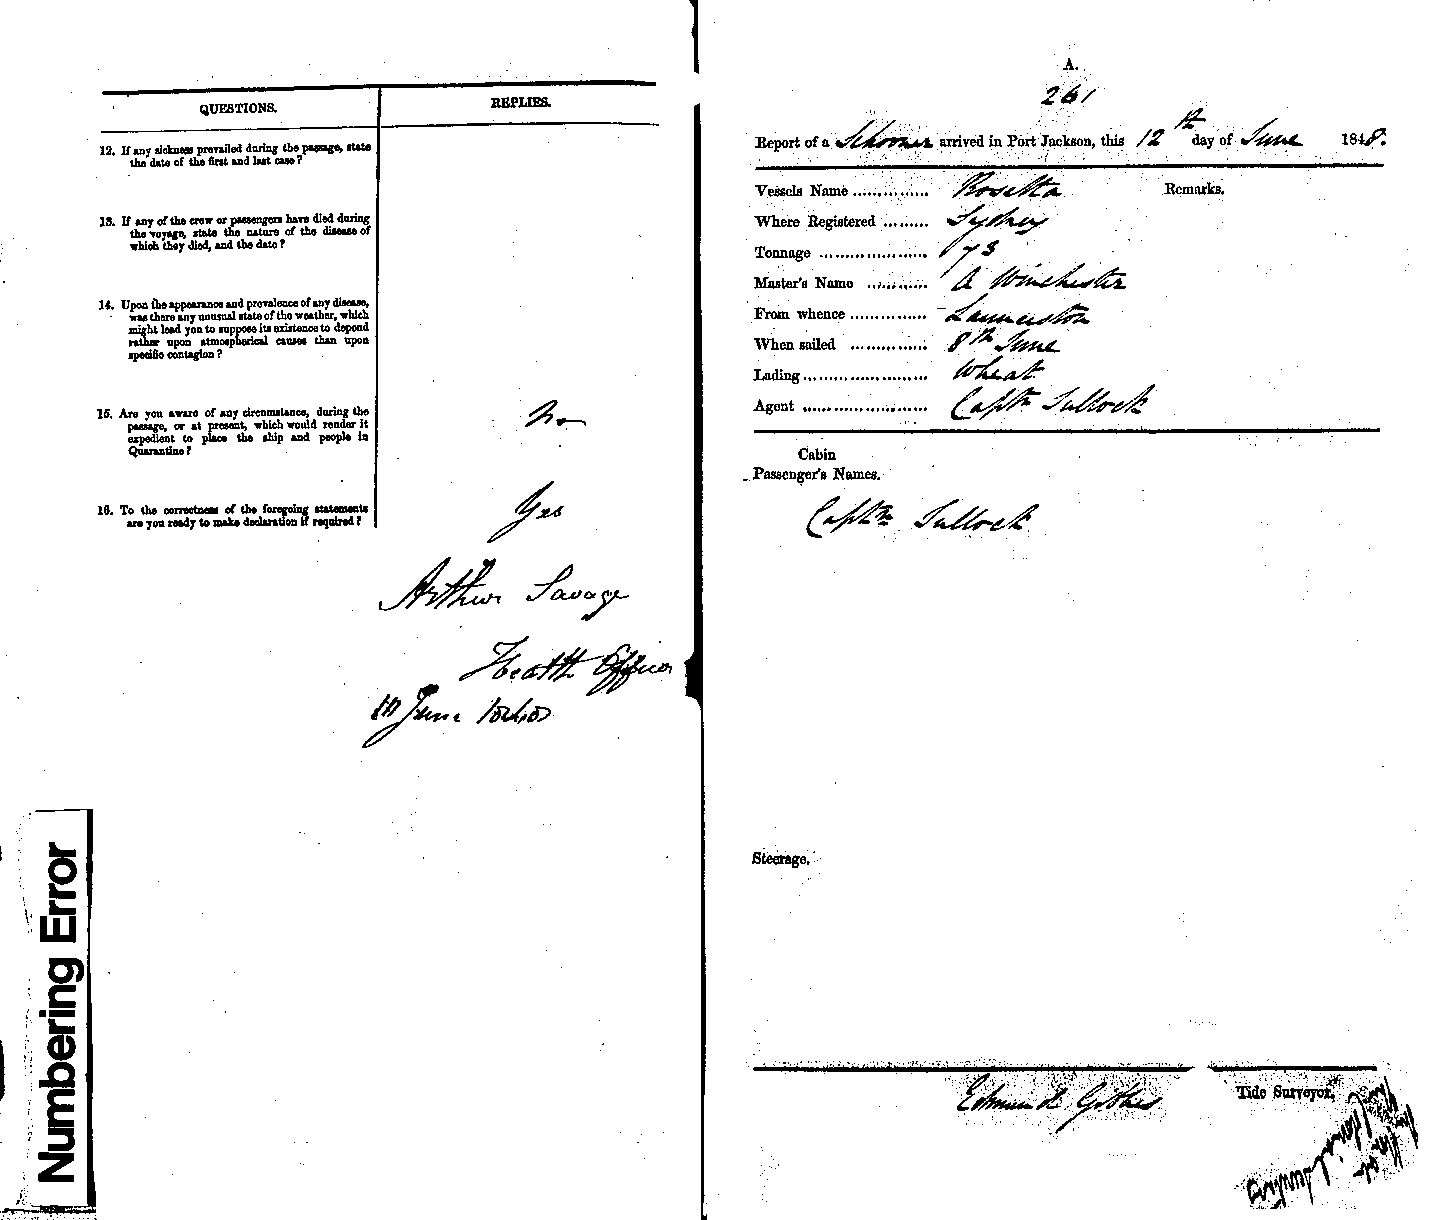 QUESTIONS.
REPLIES.
12. If any sickness prevailed during the passage, state
the date of the first and last case?
13. If any of the crew or passengers have died during
the voyage, state the nature of the disease of
which they died, and the date?
14. Upon the appearance and prevalence of any disease,
was there any unusual state of the weather, which
might lead you to suppose its existence to depend
rather upon atmospherical causes than upon
specific contagion?
15. Are you aware of any circumstance, during the
passage, or at present, which would render it
expedient to place the ship and people in
Quarantine?
No
16. To the correctness of the foregoing statements
are you ready to make declaration if required?
Yes
Arthur Savage
Health Officer
June
Numbering Error
A.
261
Report of a Schooner arrived in Port Jackson, this 12th day of June 1848.
Vessels Name ............... Rosetta
Remarks.
Where Registered ......... Sydney
Tonnage ..................... 73
Master's Name ............ A Winchester
From whence ............... Launceston
When sailed ............... 8th June
Lading ........................ Wheat
Agent ........................ Captn Tullock
Cabin
Passenger's Names.
Captn Tullock
Steerage.
Edmund
Tide Surveyor,